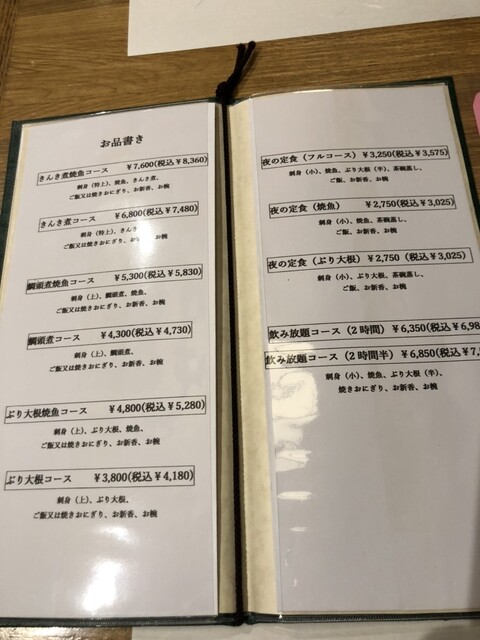 お品書き
きんき煮焼魚コース ¥7,600(税込¥8,360)
刺身（特上）、焼魚、きんき煮、
ご飯又は焼きおにぎり、お新香、お椀
きんき煮コース ¥6,800(税込¥7,480)
刺身（特上）、きん
ご飯又は焼きおにぎり、お お椀
鯛頭煮焼魚コース ¥5,300(税込¥5,830)
刺身（上）、鯛頭煮、焼魚、
ご飯又は焼きおにぎり、お新香、お椀
鯛頭煮コース ¥4,300(税込¥4,730)
刺身（上）、鯛頭煮、
ご飯又は焼きおにぎり、お新香、お椀
ぶり大根焼魚コース ¥4,800(税込¥5,280)
刺身（上）、ぶり大根、焼魚、
ご飯又は焼きおにぎり、お新香、お椀
ぶり大根コース ¥3,800(税込¥4,180)
刺身（上）、ぶり大根、
ご飯又は焼きおにぎり、お新香、お椀
夜の定食（フルコース）¥3,250(税込¥3,575)
刺身（小）、焼魚、ぶり大根（半）、茶碗蒸し、
ご飯、お新香、お椀
夜の定食（焼魚） ¥2,750(税込¥3,025)
刺身（小）、焼魚、茶碗蒸し、
ご飯、お新香、お椀
夜の定食（ぶり大根）¥2,750（税込¥3,025)
刺身（小）、ぶり大根、茶碗蒸し、
ご飯、お新香、お椀
飲み放題コース（2時間）¥6,350(税込¥6,98
飲み放題コース（2時間半）¥6,850(税込¥7,
刺身（小）、焼魚、ぶり大根（半）、
焼きおにぎり、お新香、お椀